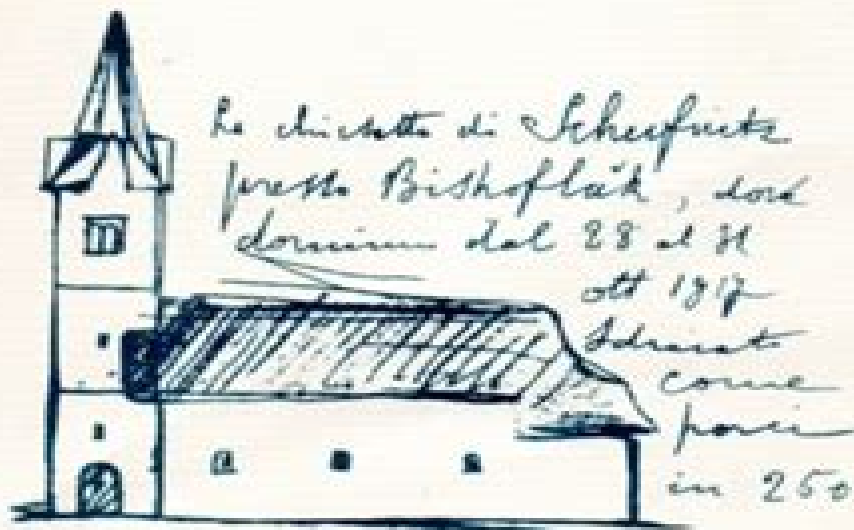 La chiesetta di
presso Bishoflák, dove
dormimmo dal 28 al 31
ott 1917
sdraiati
come
porci
in 250